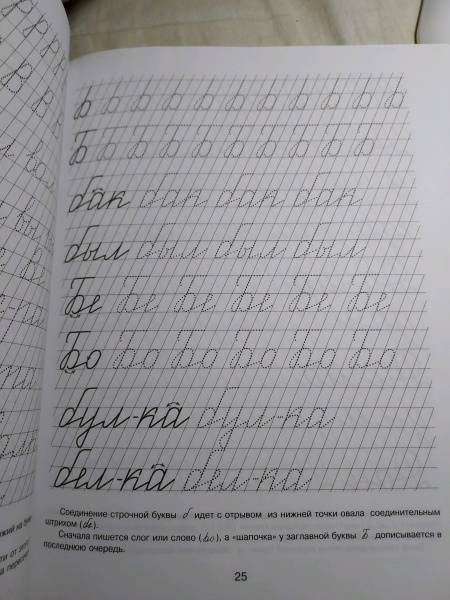 ь ь ь ь ь ь ь ь ь ь ь ь
Б Б Б Б Б Б Б Б Б Б
бак бак бак бак
был был был был
Бе Бе Бе Бе Бе Бе
Бо Бо Бо Бо Бо Бо
бул-ка бул-ка
бел-ка бел-ка
Соединение строчной буквы б идет с отрывом из нижней точки овала соединительным
штрихом (бе).
Сначала пишется слог или слово (Бо), а «шапочка» у заглавной буквы Б дописывается в
последнюю очередь.
25